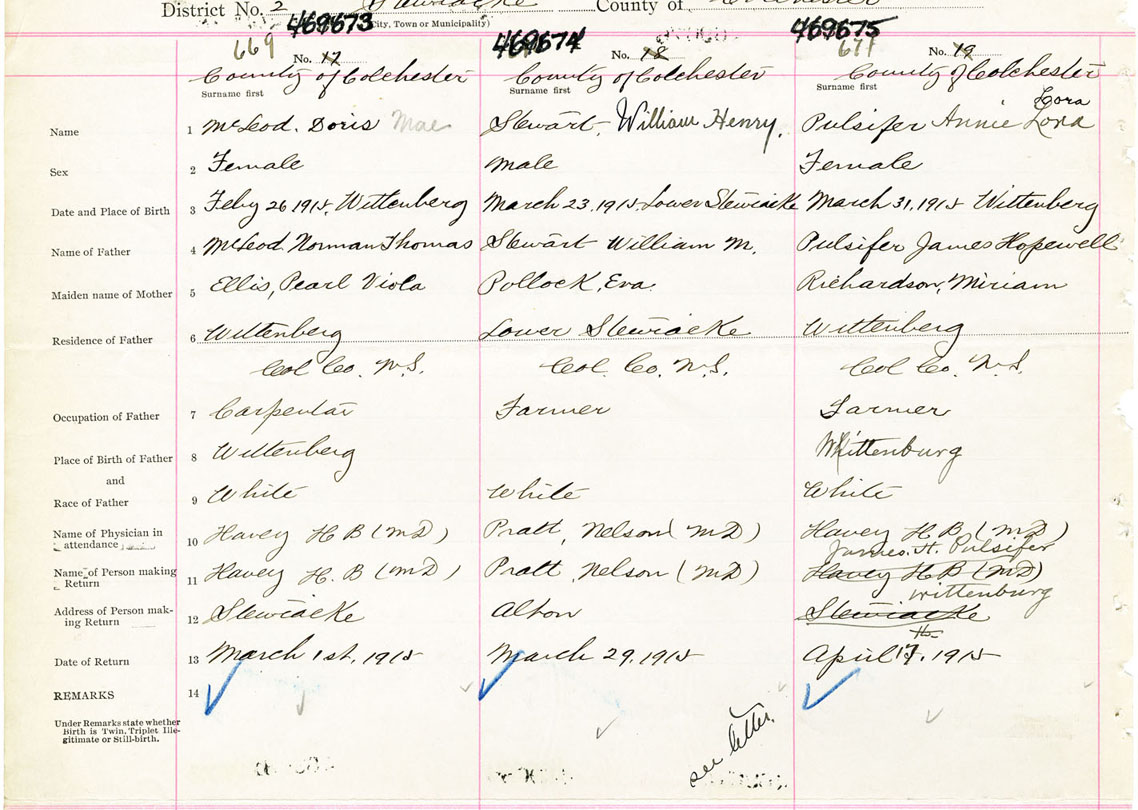 District No. 2 Stewiacke County of Colchester
(City, Town or Municipality)
469673 469674 469675
669 No. 17 No. 18 671 No. 19
County of Colchester County of Colchester County of Colchester
Surname first Surname first Surname first
Lora
Name 1 McLeod. Doris Mae Stewart, William Henry. Pulsifer Annie Lora
Sex 2 Female Male Female
Date and Place of Birth 3 Feby 26 1915, Wittenberg March 23, 1915, Lower Stewiacke March 31, 1915 Wittenberg
Name of Father 4 McLeod Norman Thomas Stewart William M. Pulsifer James Hopewell
Maiden name of Mother 5 Ellis, Pearl Viola Pollock, Eva. Richardson, Miriam
Residence of Father 6 Wittenberg Lower Stewiacke Wittenberg
Col Co. N.S. Col. Co. N.S. Col Co. N.S.
Occupation of Father 7 Carpentar Farmer Farmer
Place of Birth of Father 8 Wittenberg Whittenburg
and
Race of Father 9 White White White
Name of Physician in attendance 10 Havey H B (MD) Pratt, Nelson (MD) Havey H B (MD)
James. H. Pulsifer
Name of Person making Return 11 Havey H. B (MD) Pratt, Nelson (MD) Havey H B (MD)
Wittenburg
Address of Person making Return 12 Stewiacke Alton Stewiacke
Date of Return 13 March 1st, 1915 March 29, 1915 April 17th, 1915
REMARKS 14
Under Remarks state whether
Birth is Twin, Triplet Ille-
gitimate or Still-birth.
see letter.